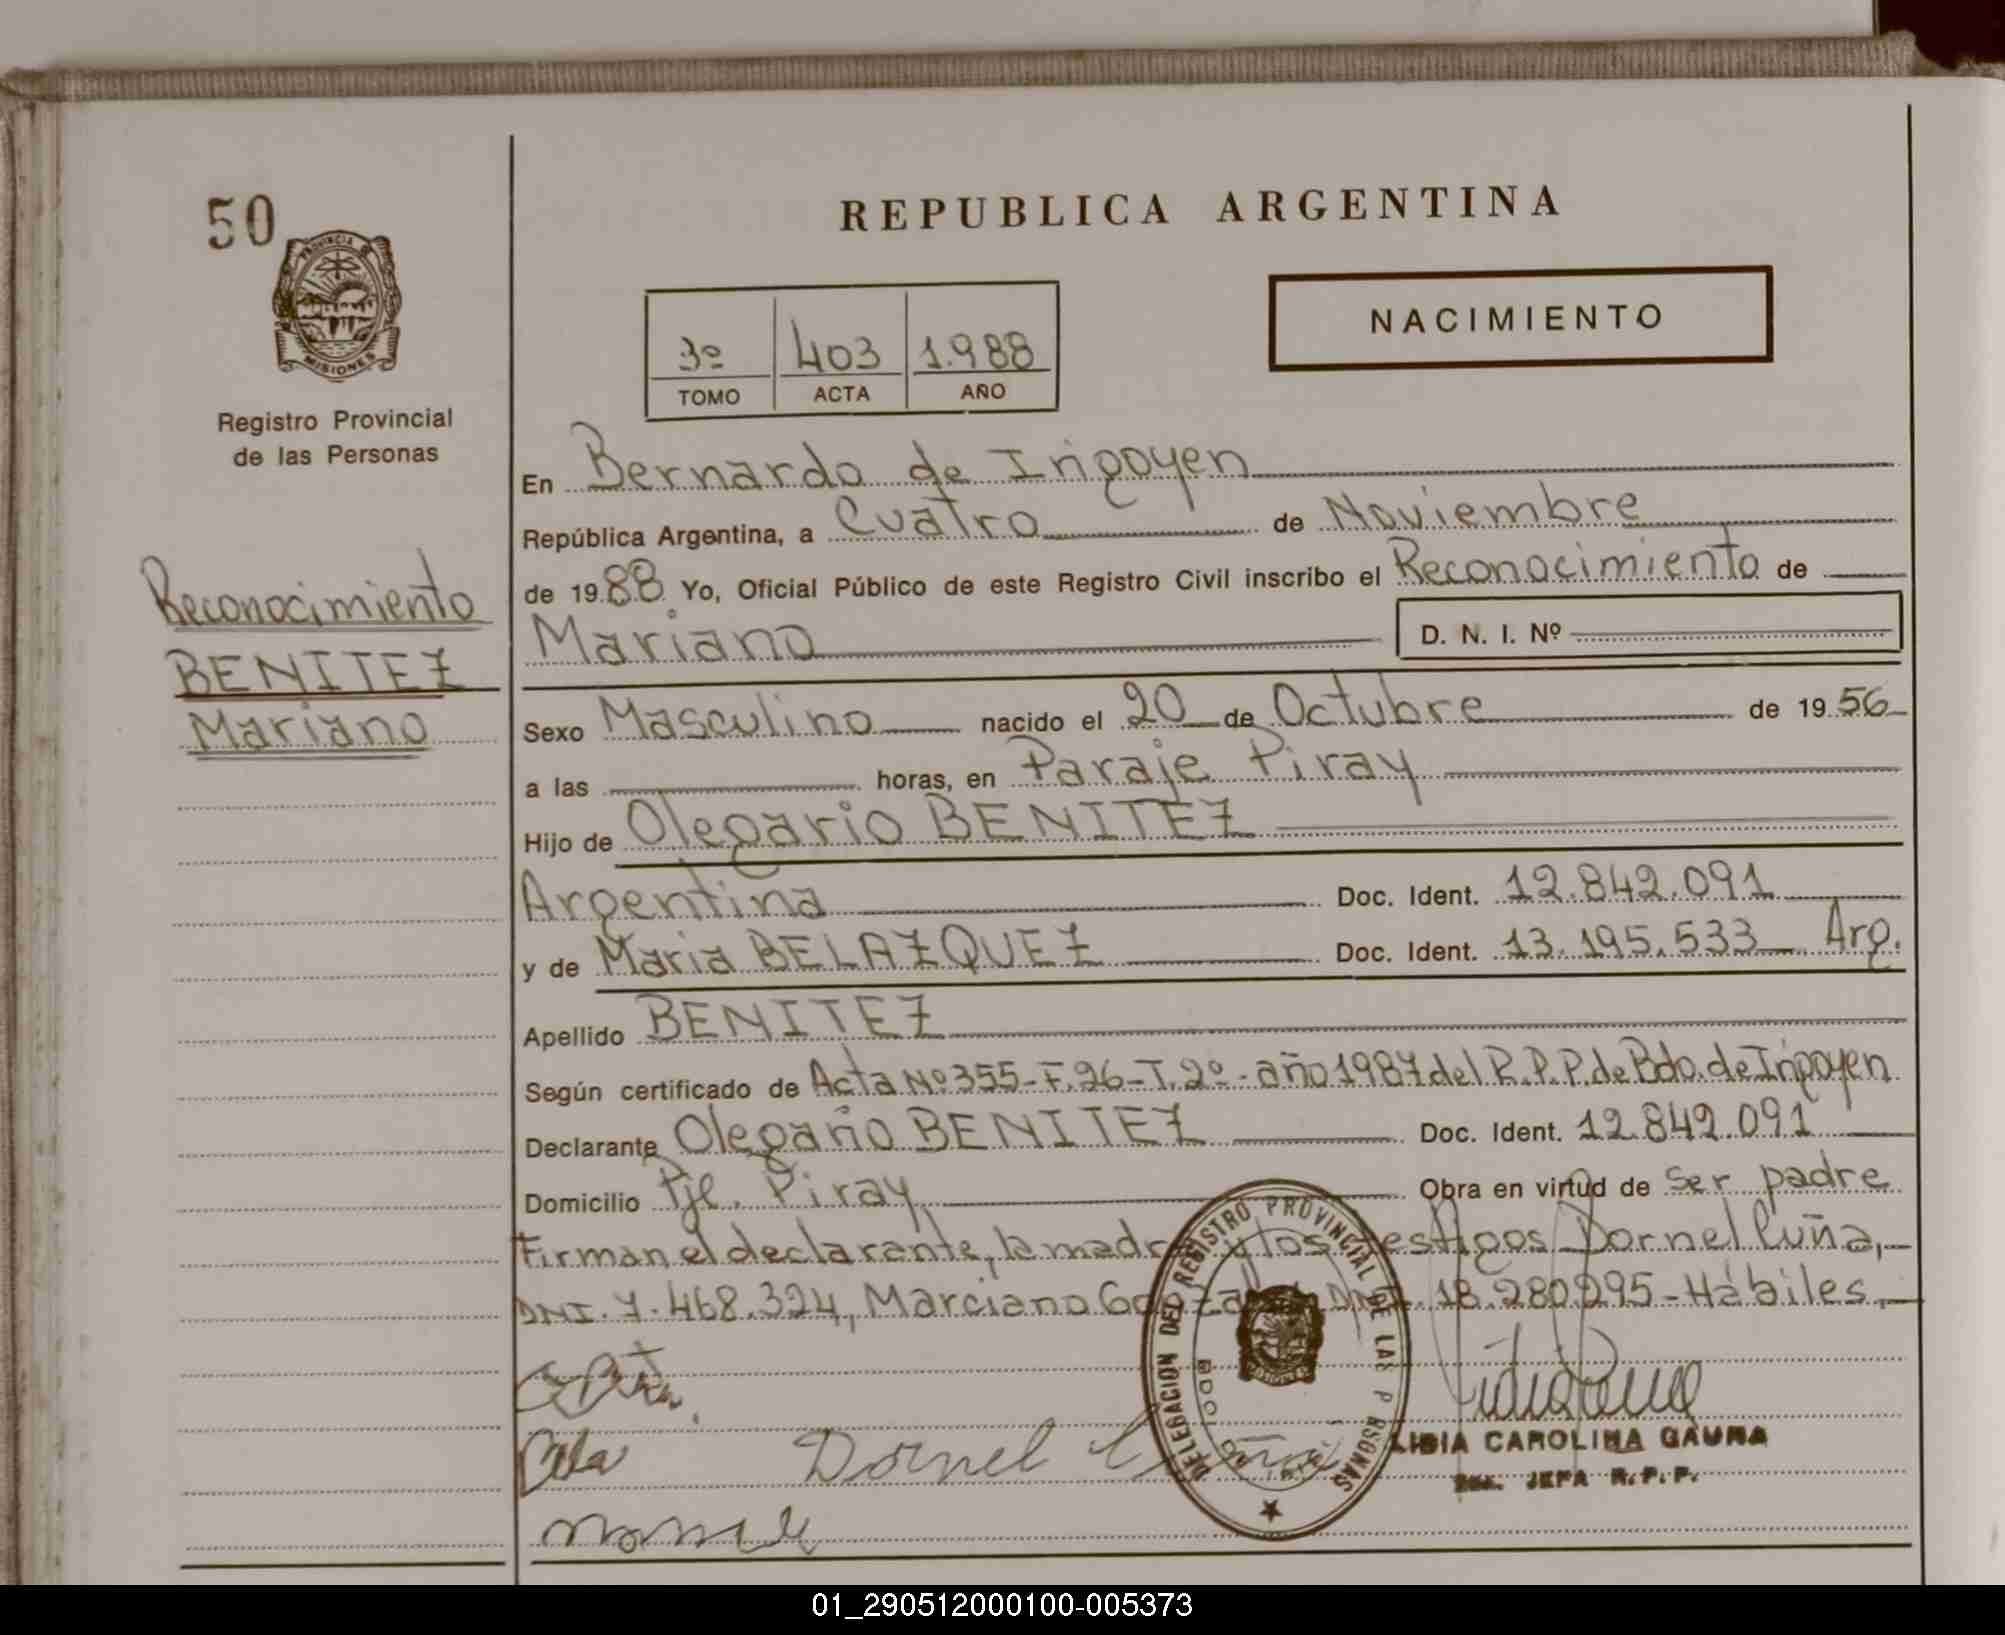 50
PROVINCIA DE
MISIONES
Registro Provincial
de las Personas
Reconocimiento
BENITEZ
Mariano
REPUBLICA ARGENTINA
3º 403 1.988
TOMO ACTA AÑO
NACIMIENTO
En Bernardo de Irigoyen
República Argentina, a Cuatro de Noviembre
de 19 88 Yo, Oficial Público de este Registro Civil inscribo el Reconocimiento de
Mariano D. N. I. Nº
Sexo Masculino nacido el 20 de Octubre de 19 56
a las horas, en Paraje Piray
Hijo de Olegario BENITEZ
Argentina Doc. Ident. 12.842.091
y de Maria BELAZQUEZ Doc. Ident. 13.195.533 Arg.
Apellido BENITEZ
Según certificado de Acta Nº 355-F.26-T.2º-año 1987 del R.P.P. de Bdo. de Irigoyen
Declarante Olegario BENITEZ Doc. Ident. 12.842.091
Domicilio Pje. Piray Obra en virtud de ser padre
Firman el declarante, la madre y los testigos Dornel Cuña,
DNI. 7.468.324, Marciano Gonzalez DNI. 18.280.295-Hábiles
DELEGACION DEL REGISTRO PROVINCIAL DE LAS PERSONAS
Dornel Cuña
LIDIA CAROLINA GAUNA
JEFA R.P.P.
01_290512000100-005373